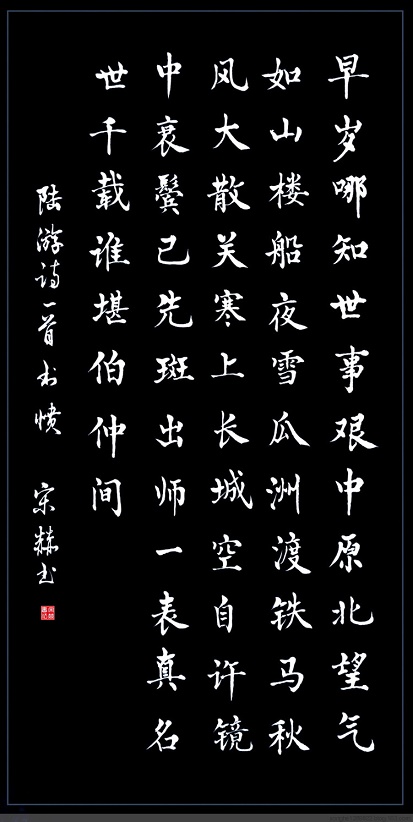 早岁哪知世事艰中原北望气
如山楼船夜雪瓜洲渡铁马秋
风大散关寒上长城空自许镜
中衰鬓已先斑出师一表真名
世千载谁堪伯仲间
陆游诗一首书愤 宋赫书